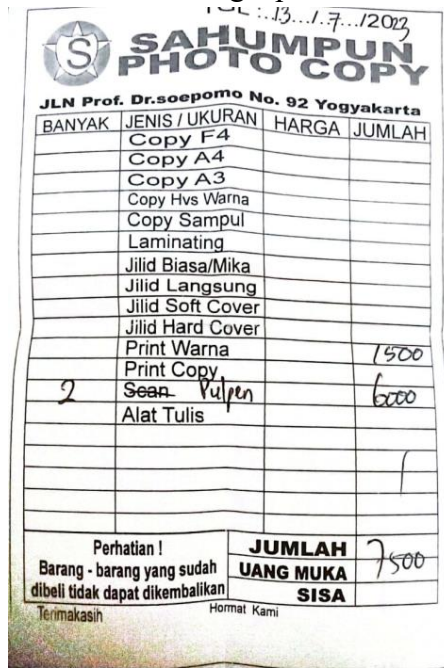 TGL : 13 / 7 / 2023
S SAHUMPUN
PHOTO COPY
JLN Prof. Dr.soepomo No. 92 Yogyakarta
BANYAK JENIS / UKURAN HARGA JUMLAH
Copy F4
Copy A4
Copy A3
Copy Hvs Warna
Copy Sampul
Laminating
Jilid Biasa/Mika
Jilid Langsung
Jilid Soft Cover
Jilid Hard Cover
Print Warna 1500
Print Copy
2 Scan Pulpen 6000
Alat Tulis
Perhatian !
Barang - barang yang sudah
dibeli tidak dapat dikembalikan
JUMLAH 7500
UANG MUKA
SISA
Terimakasih
Hormat Kami